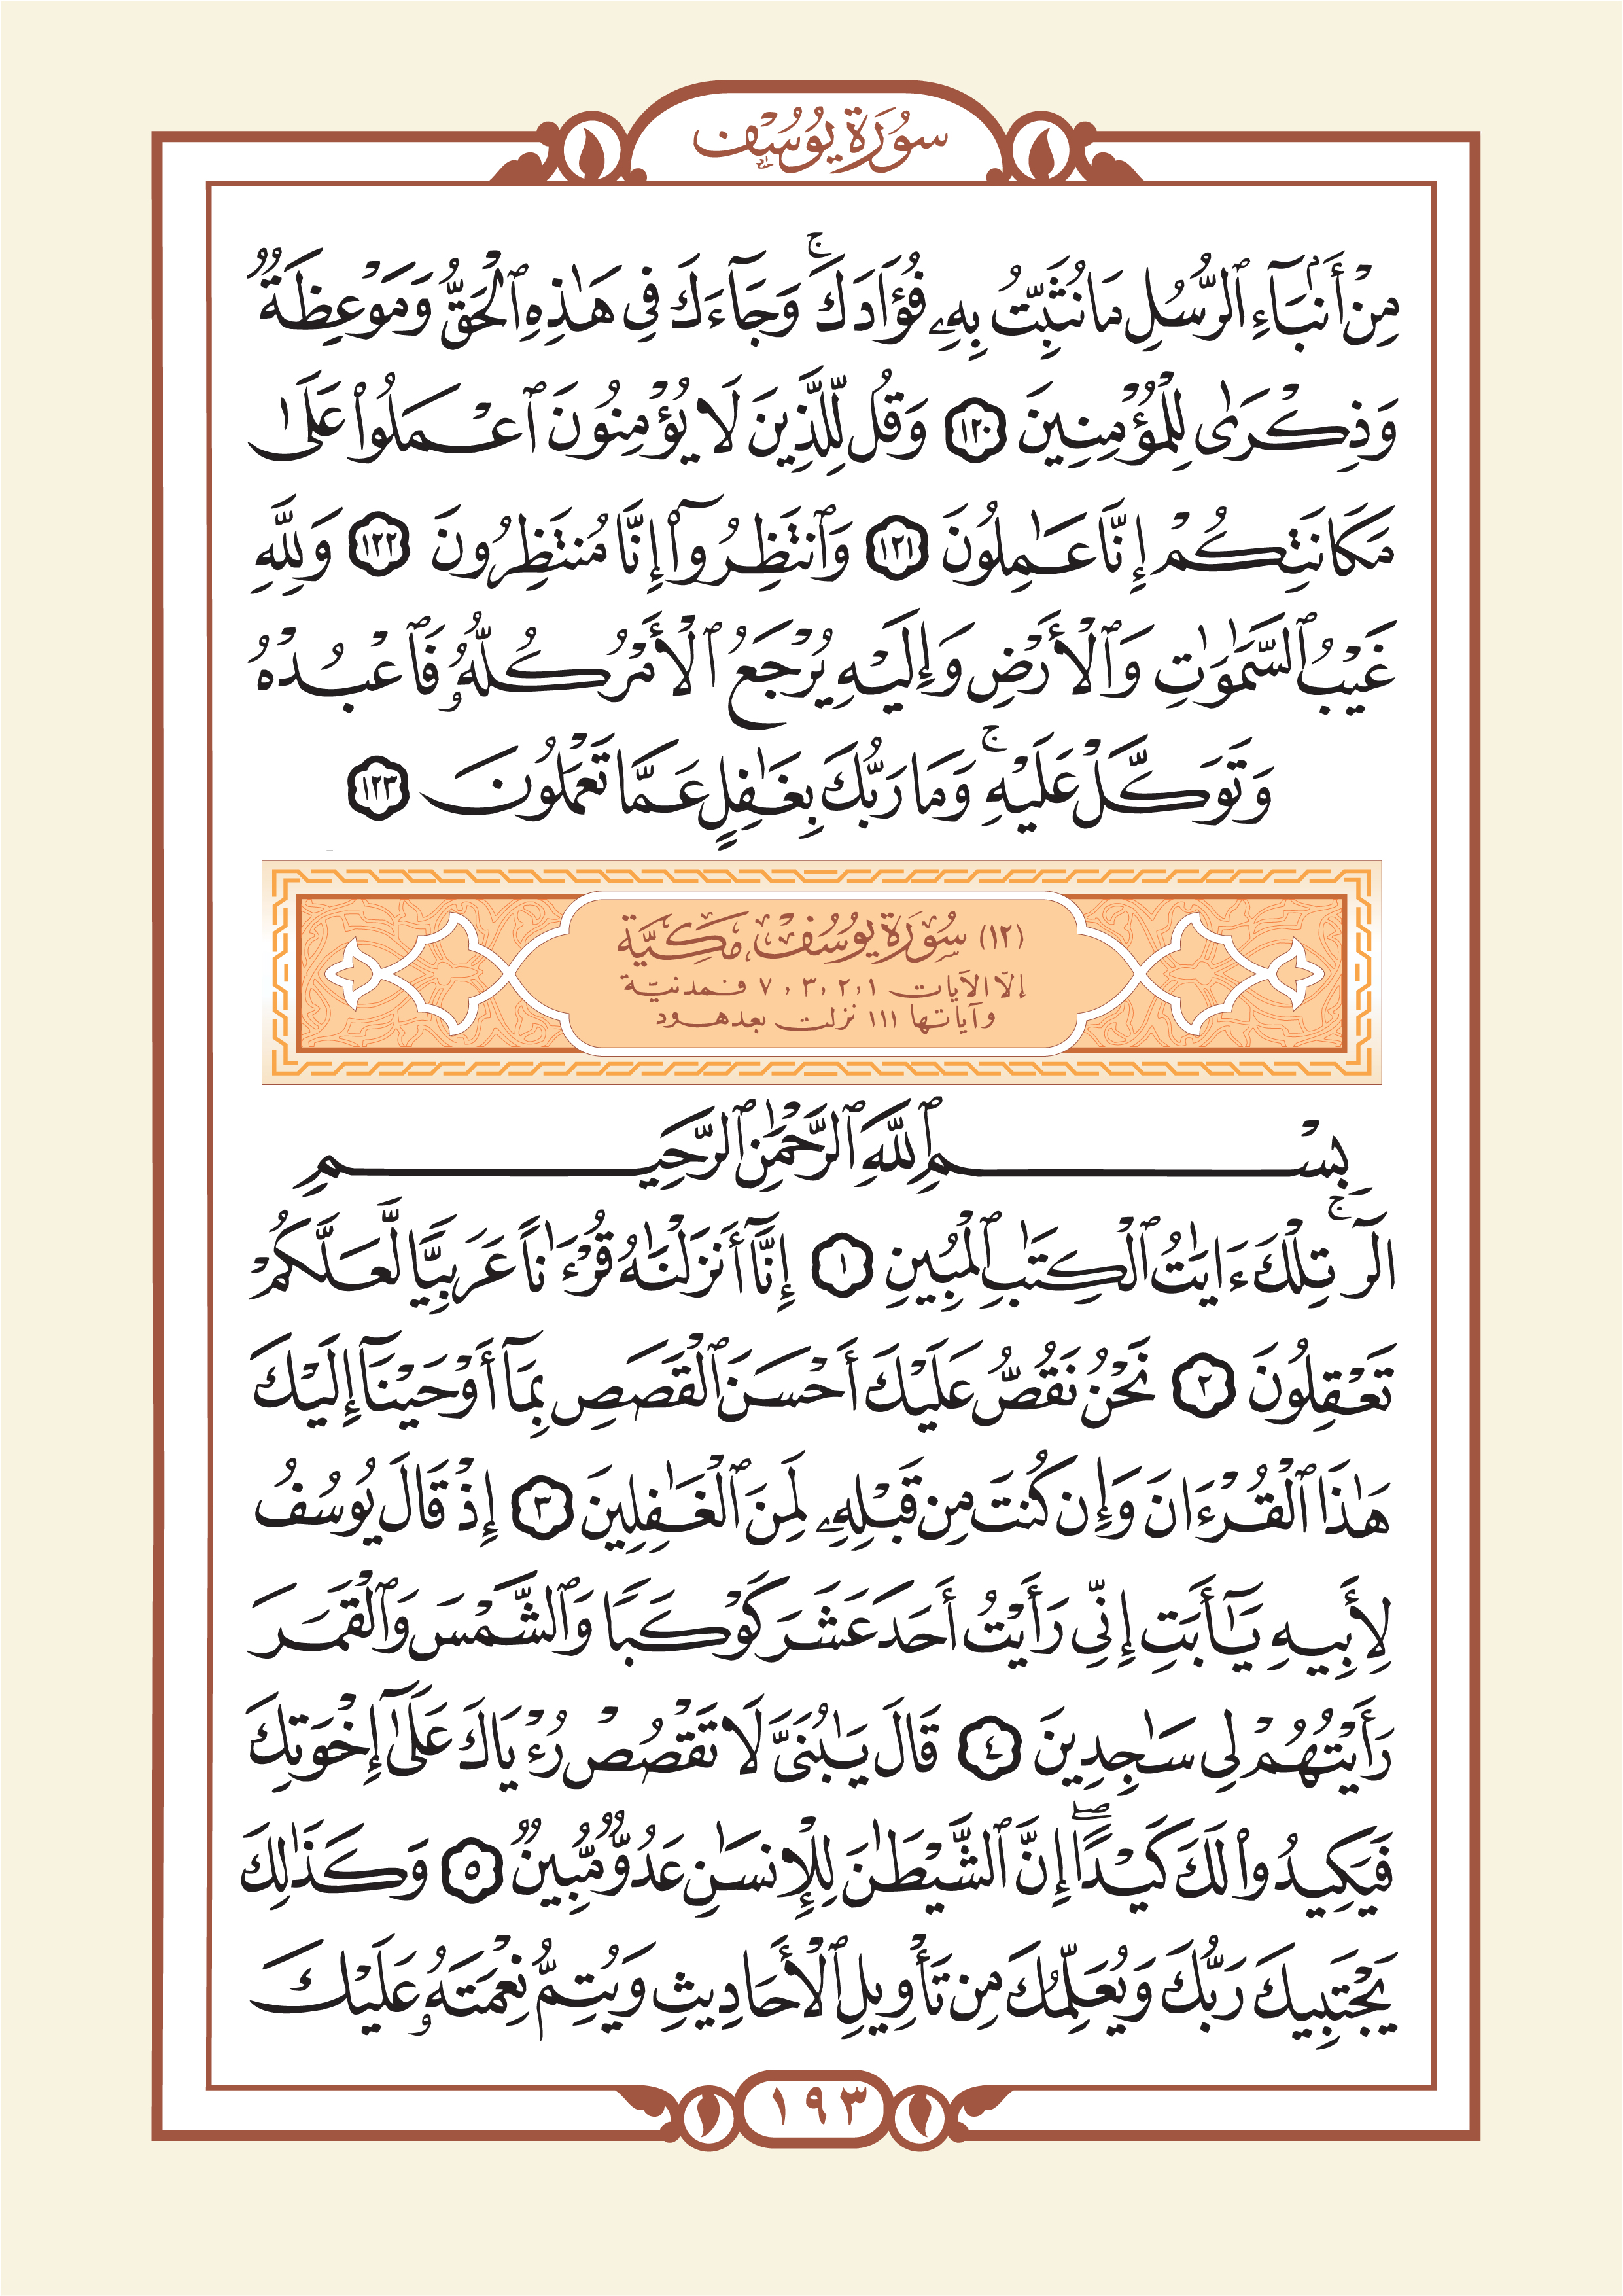 سُورَةُ يُوسُف
مِنْ أَنۢبَآءِ ٱلرُّسُلِ مَا نُثَبِّتُ بِهِۦ فُؤَادَكَ ۚ وَجَآءَكَ فِى هَٰذِهِ ٱلْحَقُّ وَمَوْعِظَةٌ
وَذِكْرَىٰ لِلْمُؤْمِنِينَ ١٢٠ وَقُل لِّلَّذِينَ لَا يُؤْمِنُونَ ٱعْمَلُوا۟ عَلَىٰ
مَكَانَتِكُمْ إِنَّا عَٰمِلُونَ ١٢١ وَٱنتَظِرُوٓا۟ إِنَّا مُنتَظِرُونَ ١٢٢ وَلِلَّهِ
غَيْبُ ٱلسَّمَٰوَٰتِ وَٱلْأَرْضِ وَإِلَيْهِ يُرْجَعُ ٱلْأَمْرُ كُلُّهُۥ فَٱعْبُدْهُ
وَتَوَكَّلْ عَلَيْهِ ۚ وَمَا رَبُّكَ بِغَٰفِلٍ عَمَّا تَعْمَلُونَ ١٢٣
(١٢) سُورَةُ يُوسُفَ مَكِّيَّة
إلّا الآيات ١، ٢، ٣، ٧ فمدنيّة
وآياتها ١١١ نزلت بعد هود
بِسْمِ ٱللَّهِ ٱلرَّحْمَٰنِ ٱلرَّحِيمِ
الٓر ۚ تِلْكَ ءَايَٰتُ ٱلْكِتَٰبِ ٱلْمُبِينِ ١ إِنَّآ أَنزَلْنَٰهُ قُرْءَٰنًا عَرَبِيًّا لَّعَلَّكُمْ
تَعْقِلُونَ ٢ نَحْنُ نَقُصُّ عَلَيْكَ أَحْسَنَ ٱلْقَصَصِ بِمَآ أَوْحَيْنَآ إِلَيْكَ
هَٰذَا ٱلْقُرْءَانَ وَإِن كُنتَ مِن قَبْلِهِۦ لَمِنَ ٱلْغَٰفِلِينَ ٣ إِذْ قَالَ يُوسُفُ
لِأَبِيهِ يَٰٓأَبَتِ إِنِّى رَأَيْتُ أَحَدَ عَشَرَ كَوْكَبًا وَٱلشَّمْسَ وَٱلْقَمَرَ
رَأَيْتُهُمْ لِى سَٰجِدِينَ ٤ قَالَ يَٰبُنَىَّ لَا تَقْصُصْ رُءْيَاكَ عَلَىٰٓ إِخْوَتِكَ
فَيَكِيدُوا۟ لَكَ كَيْدًا ۖ إِنَّ ٱلشَّيْطَٰنَ لِلْإِنسَٰنِ عَدُوٌّ مُّبِينٌ ٥ وَكَذَٰلِكَ
يَجْتَبِيكَ رَبُّكَ وَيُعَلِّمُكَ مِن تَأْوِيلِ ٱلْأَحَادِيثِ وَيُتِمُّ نِعْمَتَهُۥ عَلَيْكَ
١٩٣